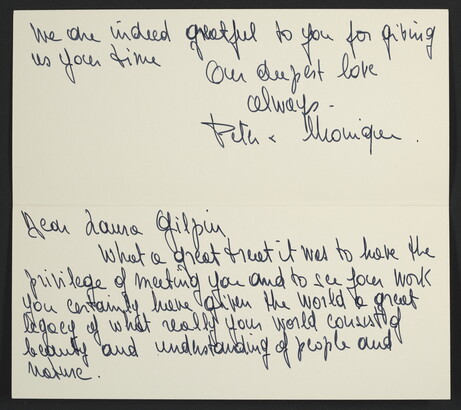 We are indeed grateful to you for giving
us your time
Our deepest love
always -
Peter & Monique.
Dear Laura Gilpin
What a great treat it was to have the
privilege of meeting you and to see your work
You certainly have given the world a great
legacy of what really your world consist of
beauty and understanding of people and
nature.